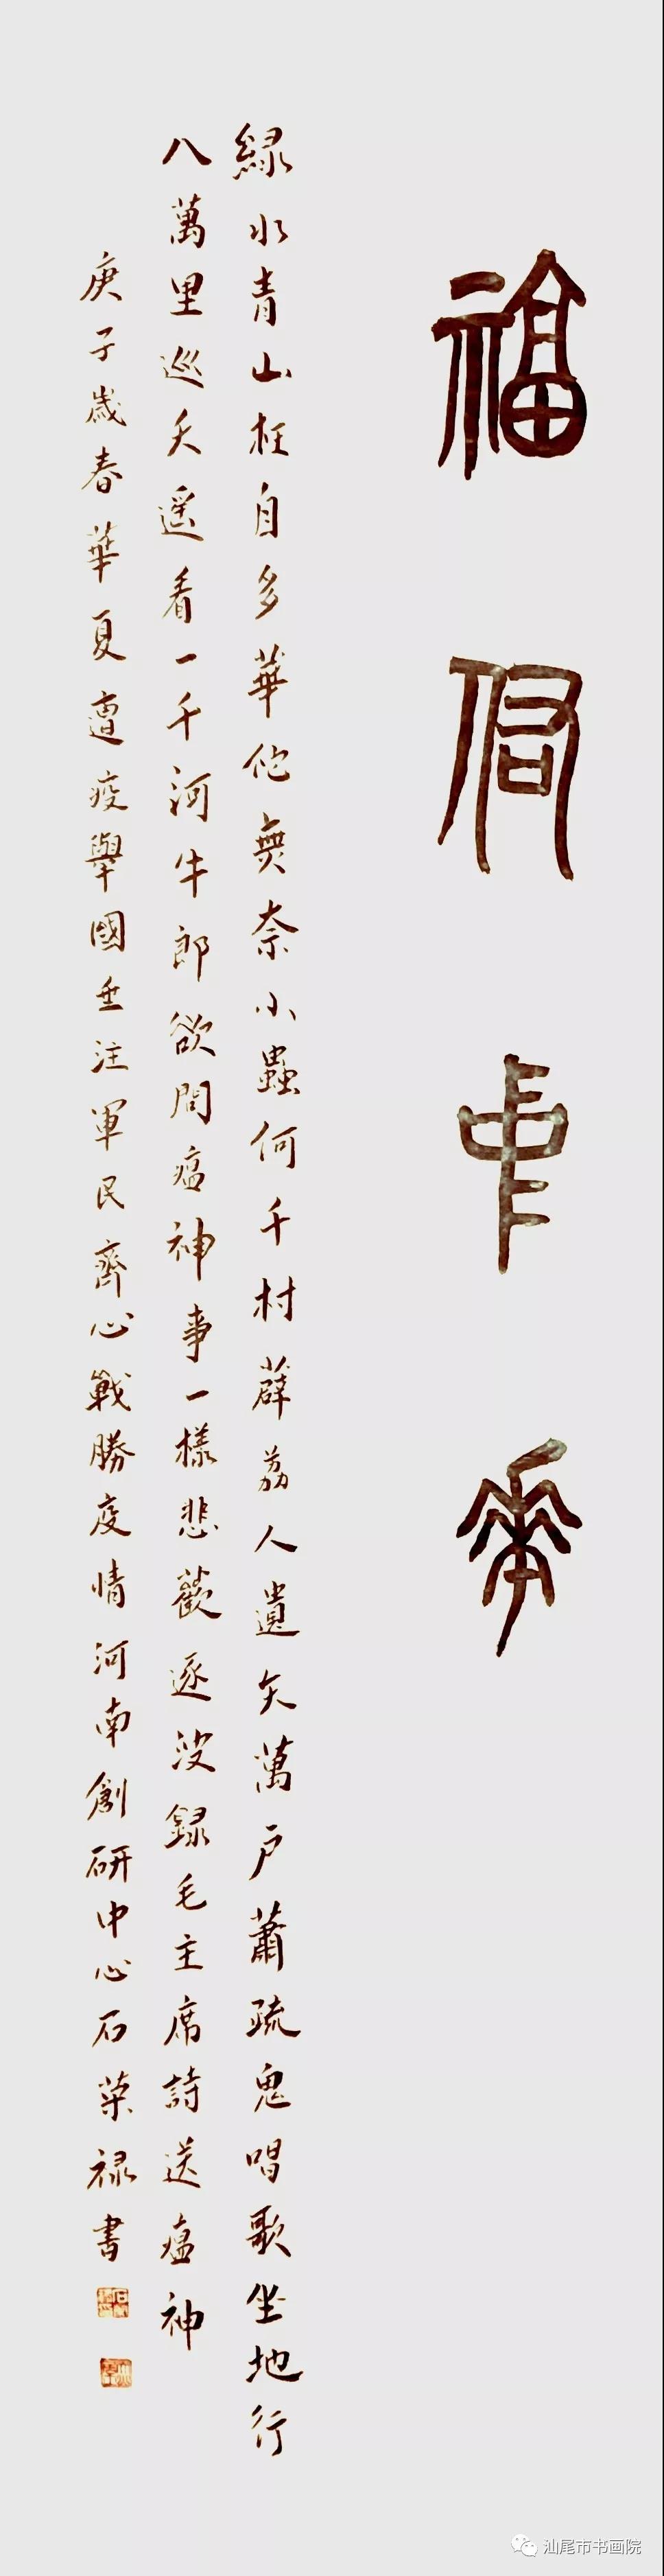 福佑中華
緑水青山枉自多華佗無奈小蟲何千村薜荔人遺矢萬户蕭疏鬼唱歌坐地行
八萬里巡天遥看一千河牛郎欲問瘟神事一樣悲歡逐波録毛主席詩送瘟神
庚子歲春華夏遭疫舉國垂注軍民齊心戰勝疫情河南創研中心石荣禄書
汕尾市书画院